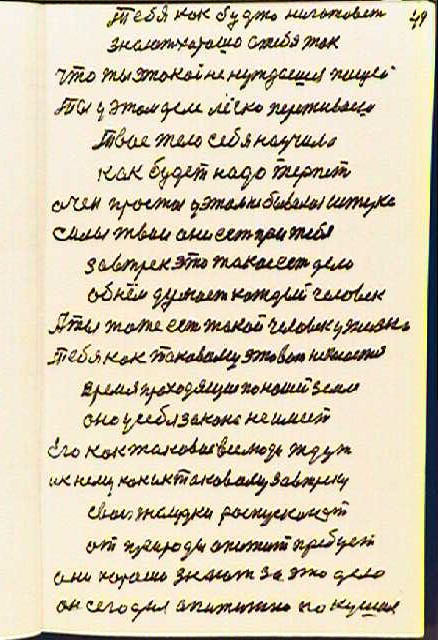 49
Тебя как будто неготовет
знают хорошо с тебя так
что ты такой не нуждаешся пищей
Ты у этом деле лёгко переживаеш
Твое тело себя научило
как будет надо терпет
очен просты у небывалая штука
силы твои они ест при тебя
завтрек это такое ест дело
об нём думает каждый человек
А ты тоже ест такой человек у жизни
Тебя как таковому этова
время проходящие по нашей земле
оно у себя закона не имеит
Его как таковое все люди ждут
и к нему как к таковому завтреку
своих желудки роспускоют
от природы апетит требует
они хорошо знают за это дело
он сегодня апетитно покушал